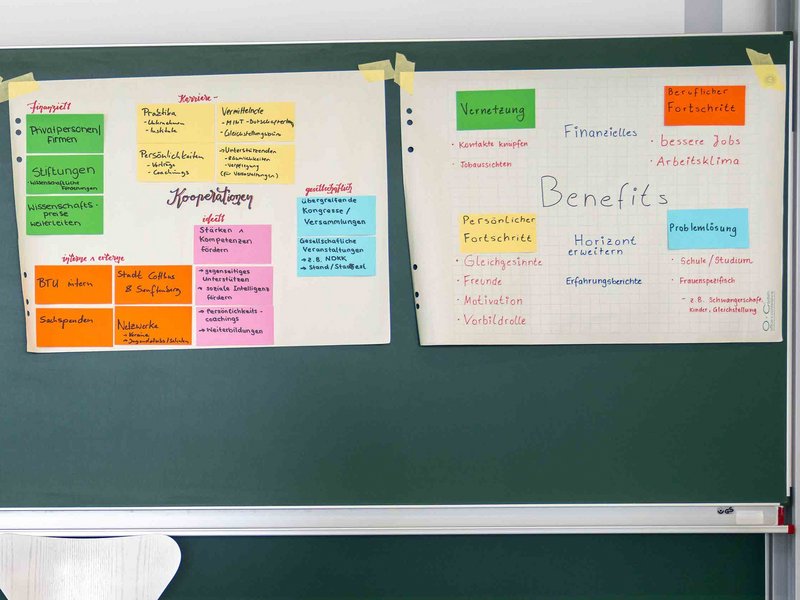 finanziell
Privatpersonen/
Firmen
Stiftungen
- Wissenschaftliche
Förderungen
Wissenschafts-
preise
weiterleiten
Karriere-
Praktika
- Unternehmen
- Institute
Vermittelnde
- MINT-Botschafter
- Gleichstellungsbüro
Persönlichkeiten
- Vorträge
- Coachings
→ Unterstützenden
- Räumlichkeiten
- Verpflegung
(für Veranstaltungen)
Kooperationen
ideell
Stärken &
Kompetenzen
fördern
→ gegenseitiges
Unterstützen
→ soziale Intelligenz
fördern
→ Persönlichkeits-
coachings
→ Weiterbildungen
gesellschaftlich
übergreifende
Kongresse/
Versammlungen
Gesellschaftliche
Veranstaltungen
→ z.B. NDKK
→ Stand/Stadtfest
interne & externe
BTU intern
Stadt Cottbus
& Senftenberg
Sachspenden
Netzwerke
- Vereine
Vernetzung
• Kontakte knüpfen
• Jobaussichten
Finanzielles
Beruflicher
Fortschritt
• bessere Jobs
• Arbeitsklima
Benefits
Persönlicher
Fortschritt
• Gleichgesinnte
• Freunde
• Motivation
• Vorbildrolle
Horizont
erweitern
Erfahrungsberichte
Problemlösung
• Schule/Studium
• Frauenspezifisch
- z.B. Schwangerschaft,
Kinder, Gleichstellung
GS